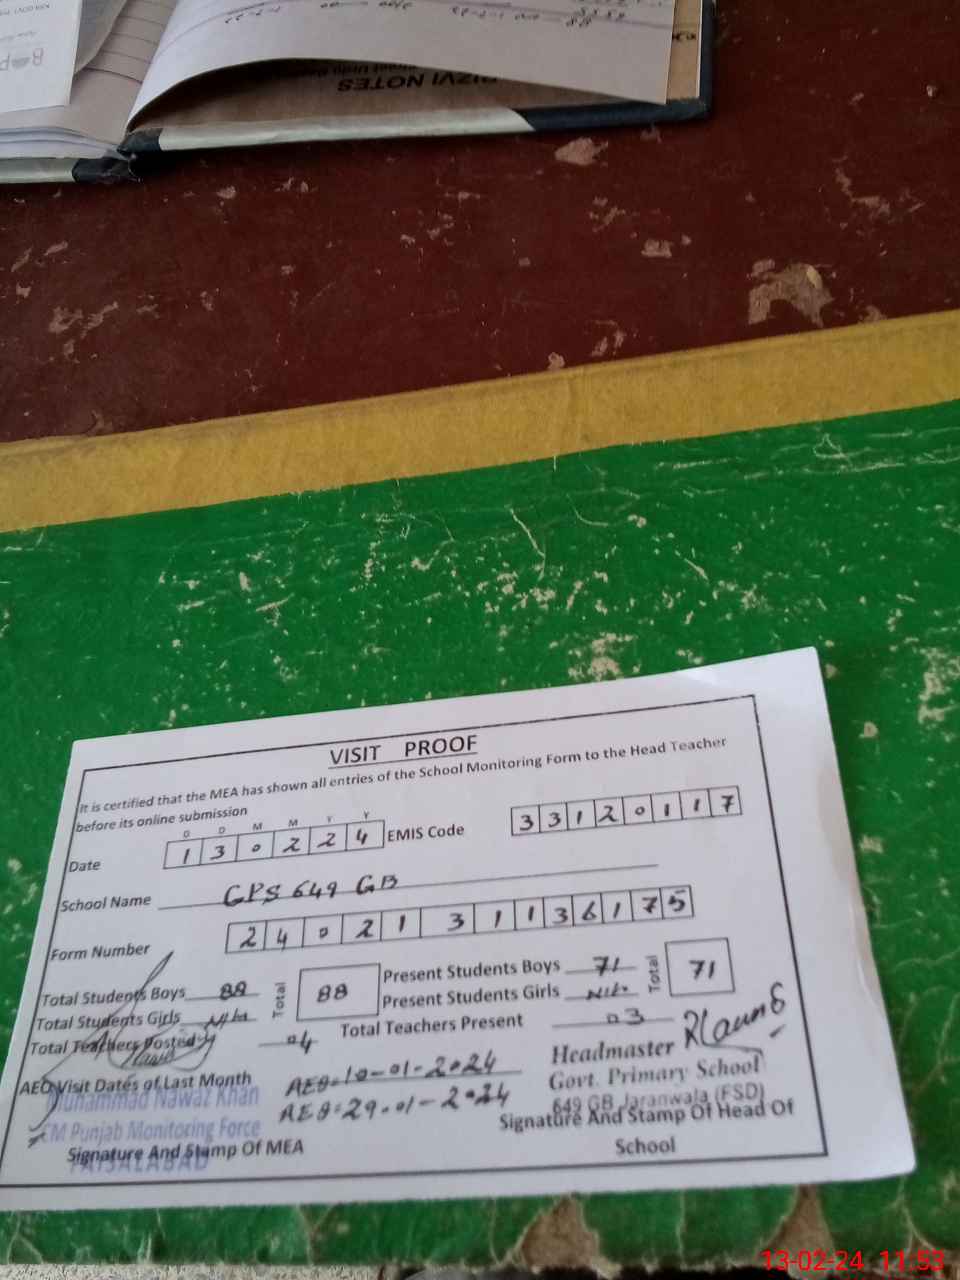 RIZVI NOTES
VISIT PROOF
It is certified that the MEA has shown all entries of the School Monitoring Form to the Head Teacher
before its online submission
D D M M Y Y
Date 1 3 0 2 2 4 EMIS Code 3 3 1 2 0 1 1 7
School Name GPS 649 GB
Form Number 2 4 0 2 1 3 1 1 3 6 1 7 5
Total Students Boys 88 Total 88 Present Students Boys 71 Total 71
Total Students Girls Nil Present Students Girls Nil
Total Teachers Posted 04 Total Teachers Present 03
AEO Visit Dates of Last Month AEO=10-01-2024
AEO=29-01-2024
Headmaster
Govt. Primary School
649 GB Jaranwala (FSD)
Signature And Stamp Of Head Of
School
Muhammad Nawaz Khan
Punjab Monitoring Force
FAISALABAD
Signature And Stamp Of MEA
13-02-24 11:53